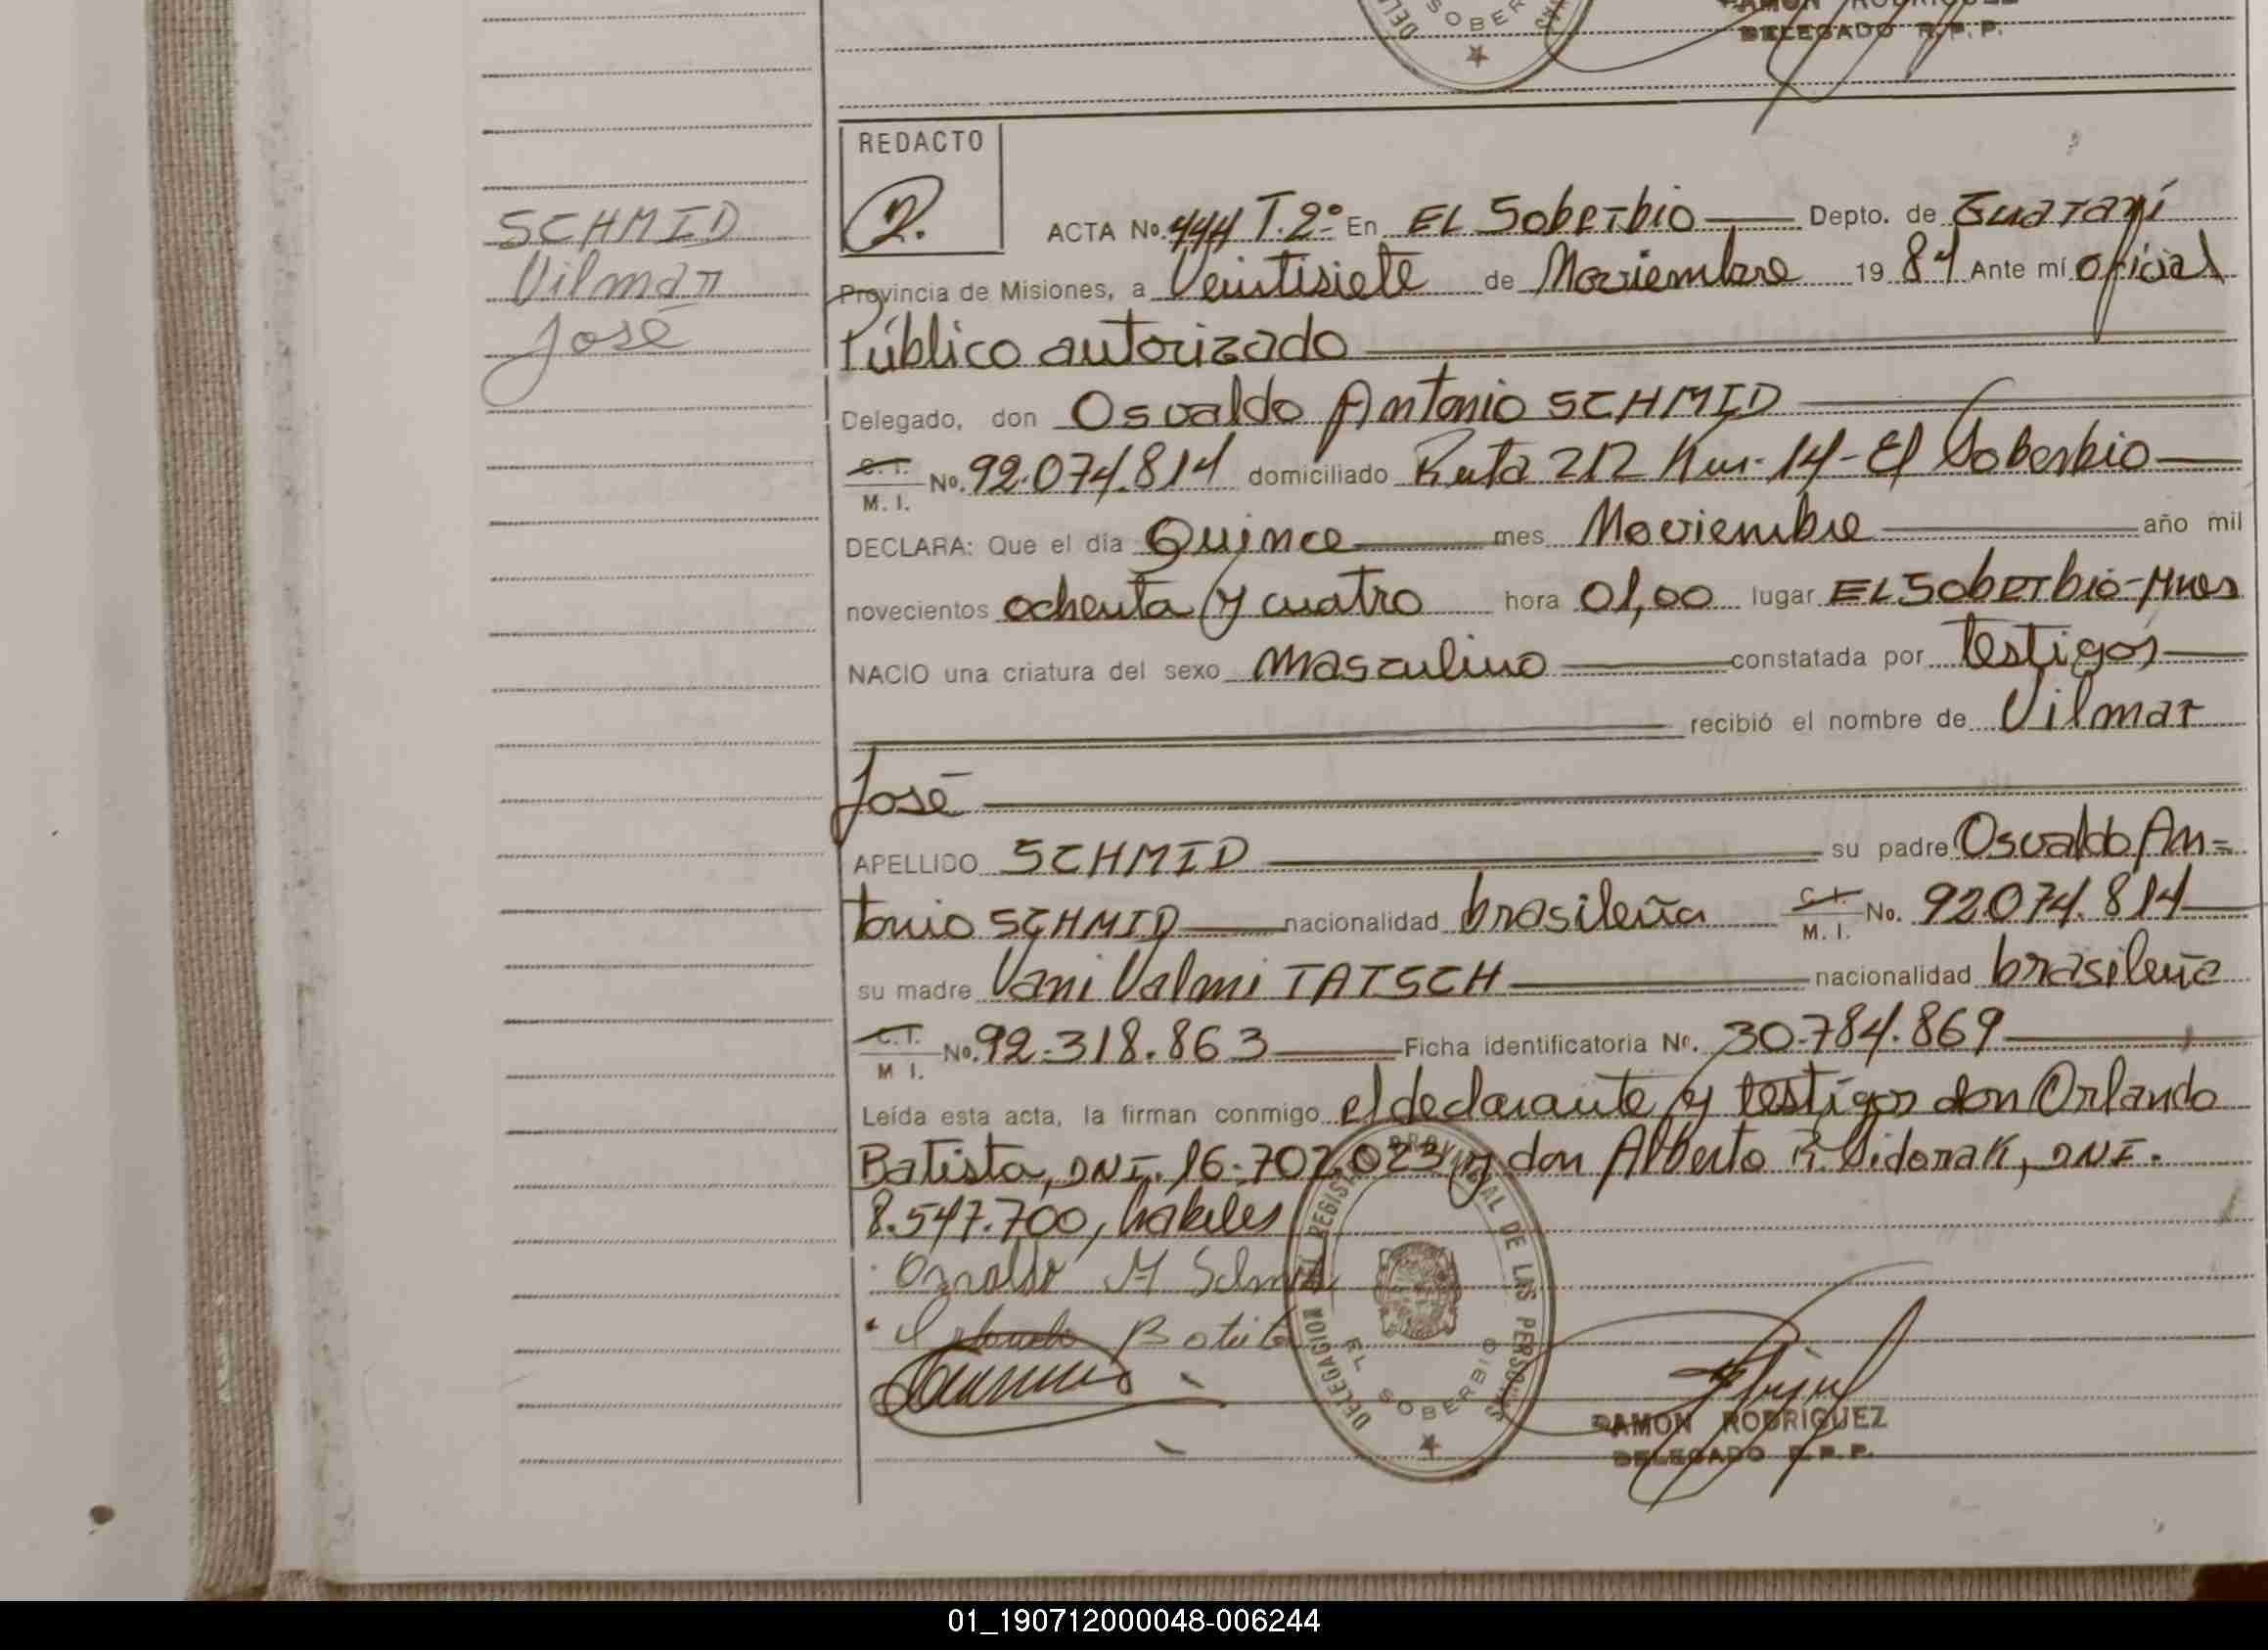 SOBER
DEL
RAMON RODRIGUEZ
DELEGADO R.P.P.
REDACTO
SCHMID
Vilmar
José
ACTA No. 444 T.2º En EL Soberbio Depto. de Guaraní
Provincia de Misiones, a Veintisiete de Noviembre 19 84 Ante mí oficial
Público autorizado
Delegado, don Osvaldo Antonio SCHMID
C.I. M. I. No. 92.074.814 domiciliado Ruta 212 Km. 14 - El Soberbio
DECLARA: Que el día Quince mes Noviembre año mil
novecientos ochenta y cuatro hora 01,00 lugar EL Soberbio - Mnes
NACIO una criatura del sexo masculino constatada por testigos
recibió el nombre de Vilmar
José
APELLIDO SCHMID su padre Osvaldo An=
tonio SCHMID nacionalidad brasileña C.I. M. I. No. 92.074.814
su madre Vani Valmi TATSCH nacionalidad brasileña
C.I. M I. No. 92.318.863 Ficha identificatoria No. 30.784.869
Leída esta acta, la firman conmigo el declarante y testigos don Orlando
Batista, DNI. 16.702.023 y don Alberto R. Sidorak, DNI.
8.547.700, habiles
Batista
DELEGACION DEL REGISTRO PROVINCIAL DE LAS PERSONAS
EL SOBERBIO
RAMON RODRIGUEZ
DELEGADO R.P.P.
01_190712000048-006244